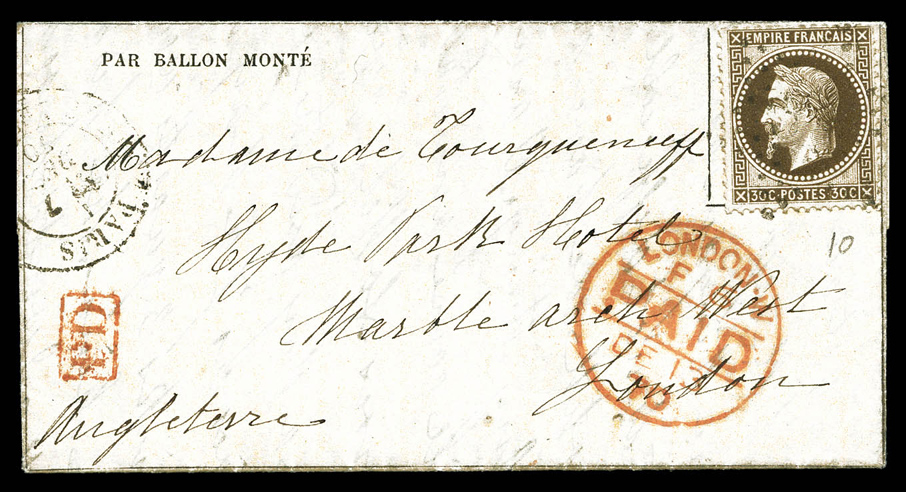 PAR BALLON MONTÉ
EMPIRE FRANCAIS
30C·POSTES·30C
Madame de Tourgueneff
Hyde Park Hotel
Marble arch West
London
Angleterre
PARIS
PD
LONDON.W
PAID
DE 13
70
10